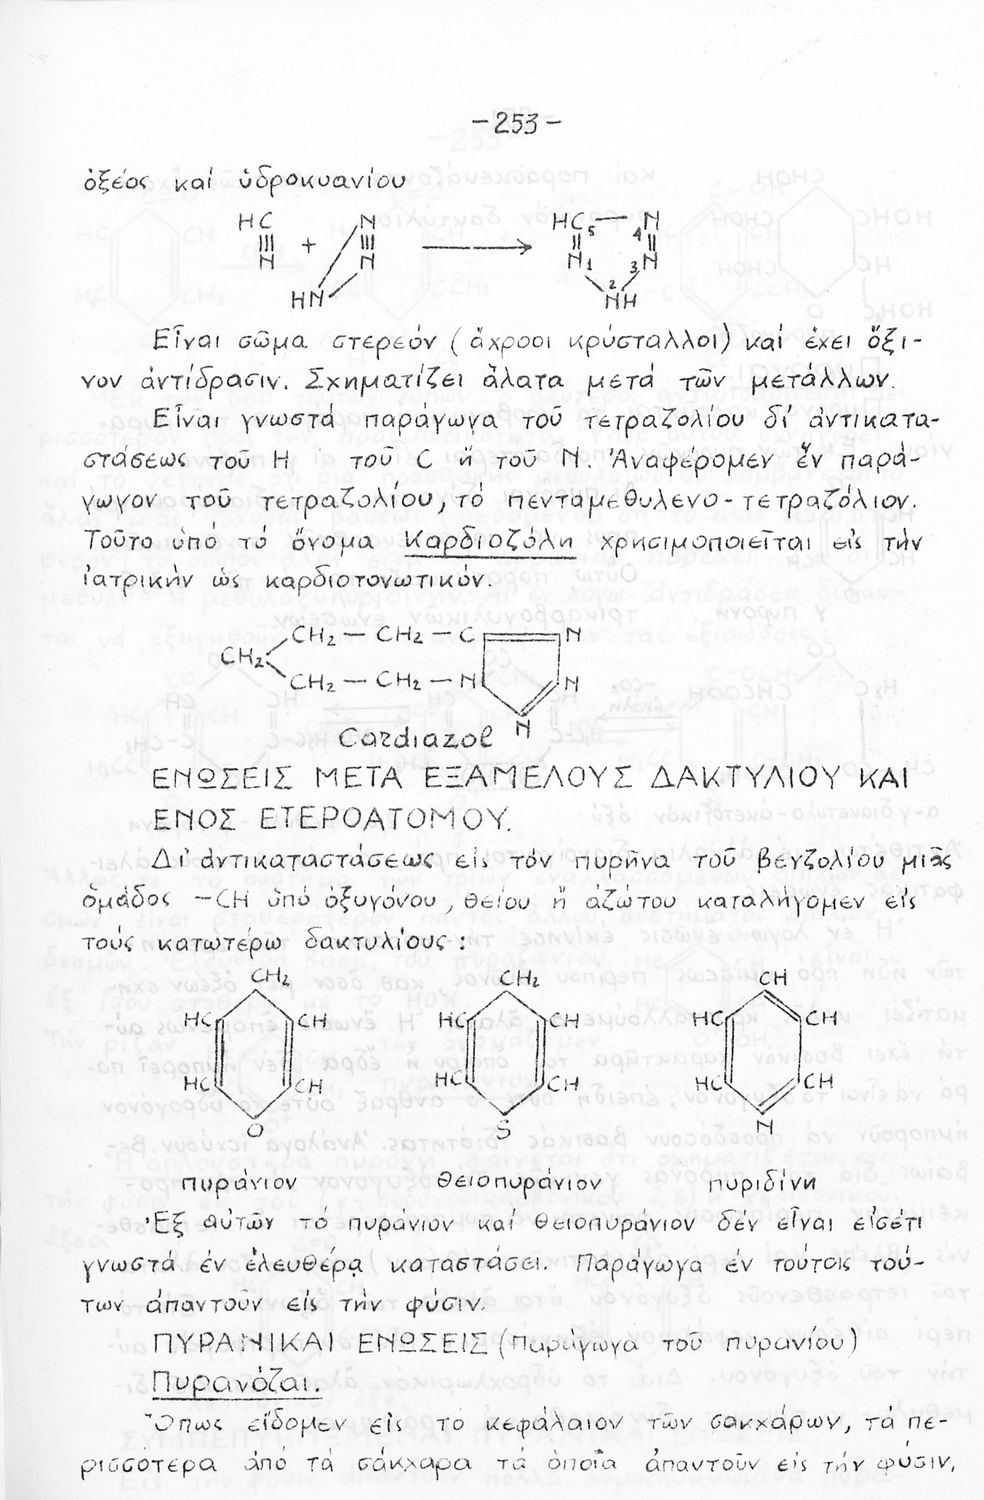 -253-
ὀξέος καί ὑδροκυανίου
HC N HC — N
||| + ||| → || 5 4 ||
N N N 1 3 N
HN 2 NH
Εἶναι σῶμα στερεόν (ἄχροοι κρύσταλλοι) καί ἔχει ὄξι-
νον ἀντίδρασιν. Σχηματίζει ἅλατα μετά τῶν μετάλλων.
Εἶναι γνωστά παράγωγα τοῦ τετραζολίου δι' ἀντικατα-
στάσεως τοῦ H τοῦ C ἤ τοῦ N. Ἀναφέρομεν ἕν παρά-
γωγον τοῦ τετραζολίου, τό πενταμεθυλενο-τετραζόλιον.
Τοῦτο ὑπό τό ὄνομα Καρδιοζόλη χρησιμοποιεῖται εἰς τήν
ἰατρικήν ὡς καρδιοτονωτικόν.
CH2 — CH2 — C N
CH2
CH2 — CH2 — N N
N
Cardiazol
ΕΝΩΣΕΙΣ ΜΕΤΑ ΕΞΑΜΕΛΟΥΣ ΔΑΚΤΥΛΙΟΥ ΚΑΙ
ΕΝΟΣ ΕΤΕΡΟΑΤΟΜΟΥ.
Δι' ἀντικαταστάσεως εἰς τόν πυρῆνα τοῦ βενζολίου μιᾶς
ὁμάδος -CH ὑπό ὀξυγόνου, θείου ἤ ἀζώτου καταλήγομεν εἰς
τούς κατωτέρω δακτυλίους:
CH2 CH2 CH
HC CH HC CH HC CH
HC CH HC CH HC CH
O S N
πυράνιον θειοπυράνιον πυριδίνη
Ἐξ αὐτῶν τό πυράνιον καί θειοπυράνιον δέν εἶναι εἰσέτι
γνωστά ἐν ἐλευθέρᾳ καταστάσει. Παράγωγα ἐν τούτοις τού-
των ἀπαντοῦν εἰς τήν φύσιν.
ΠΥΡΑΝΙΚΑΙ ΕΝΩΣΕΙΣ (Παράγωγα τοῦ πυρανίου)
Πυρανόζαι.
Ὅπως εἴδομεν εἰς τό κεφάλαιον τῶν σακχάρων, τά πε-
ρισσότερα ἀπό τά σάκχαρα τά ὁποῖα ἀπαντοῦν εἰς τήν φύσιν,